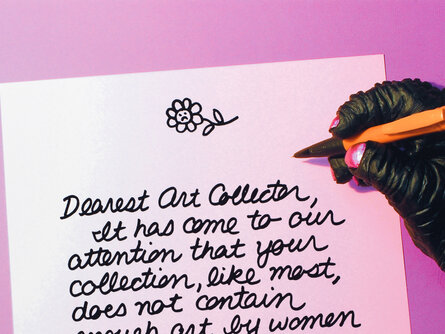 Dearest Art Collector,
It has come to our
attention that your
collection, like most,
does not contain
enough art by women